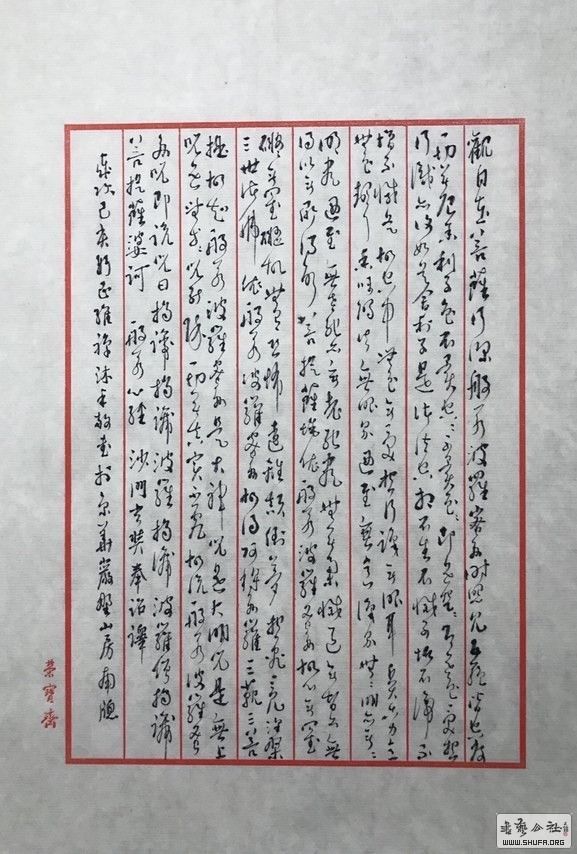 觀自在菩薩行深般若波羅蜜多時照見五蘊皆空度
一切苦厄舍利子色不異空空不異色色即是空空即是色受想
行識亦復如是舍利子是諸法空相不生不滅不垢不淨不
增不減是故空中無色無受想行識無眼耳鼻舌身意
無色聲香味觸法無眼界乃至無意識界無無明亦無無
明盡乃至無老死亦無老死盡無苦集滅道無智亦無
得以無所得故菩提薩埵依般若波羅蜜多故心無罣
礙無罣礙故無有恐怖遠離顛倒夢想究竟涅槃
三世諸佛依般若波羅蜜多故得阿耨多羅三藐三菩
提故知般若波羅蜜多是大神咒是大明咒是無上
咒是無等等咒能除一切苦真實不虛故說般若波羅蜜
多咒即說咒曰揭諦揭諦波羅揭諦波羅僧揭諦
菩提薩婆訶 般若心經 沙門玄奘奉詔譯
歲次己亥 沐手敬書於京華 山房南牖
榮寶齋
書藝公社
WWW.SHUFA.ORG